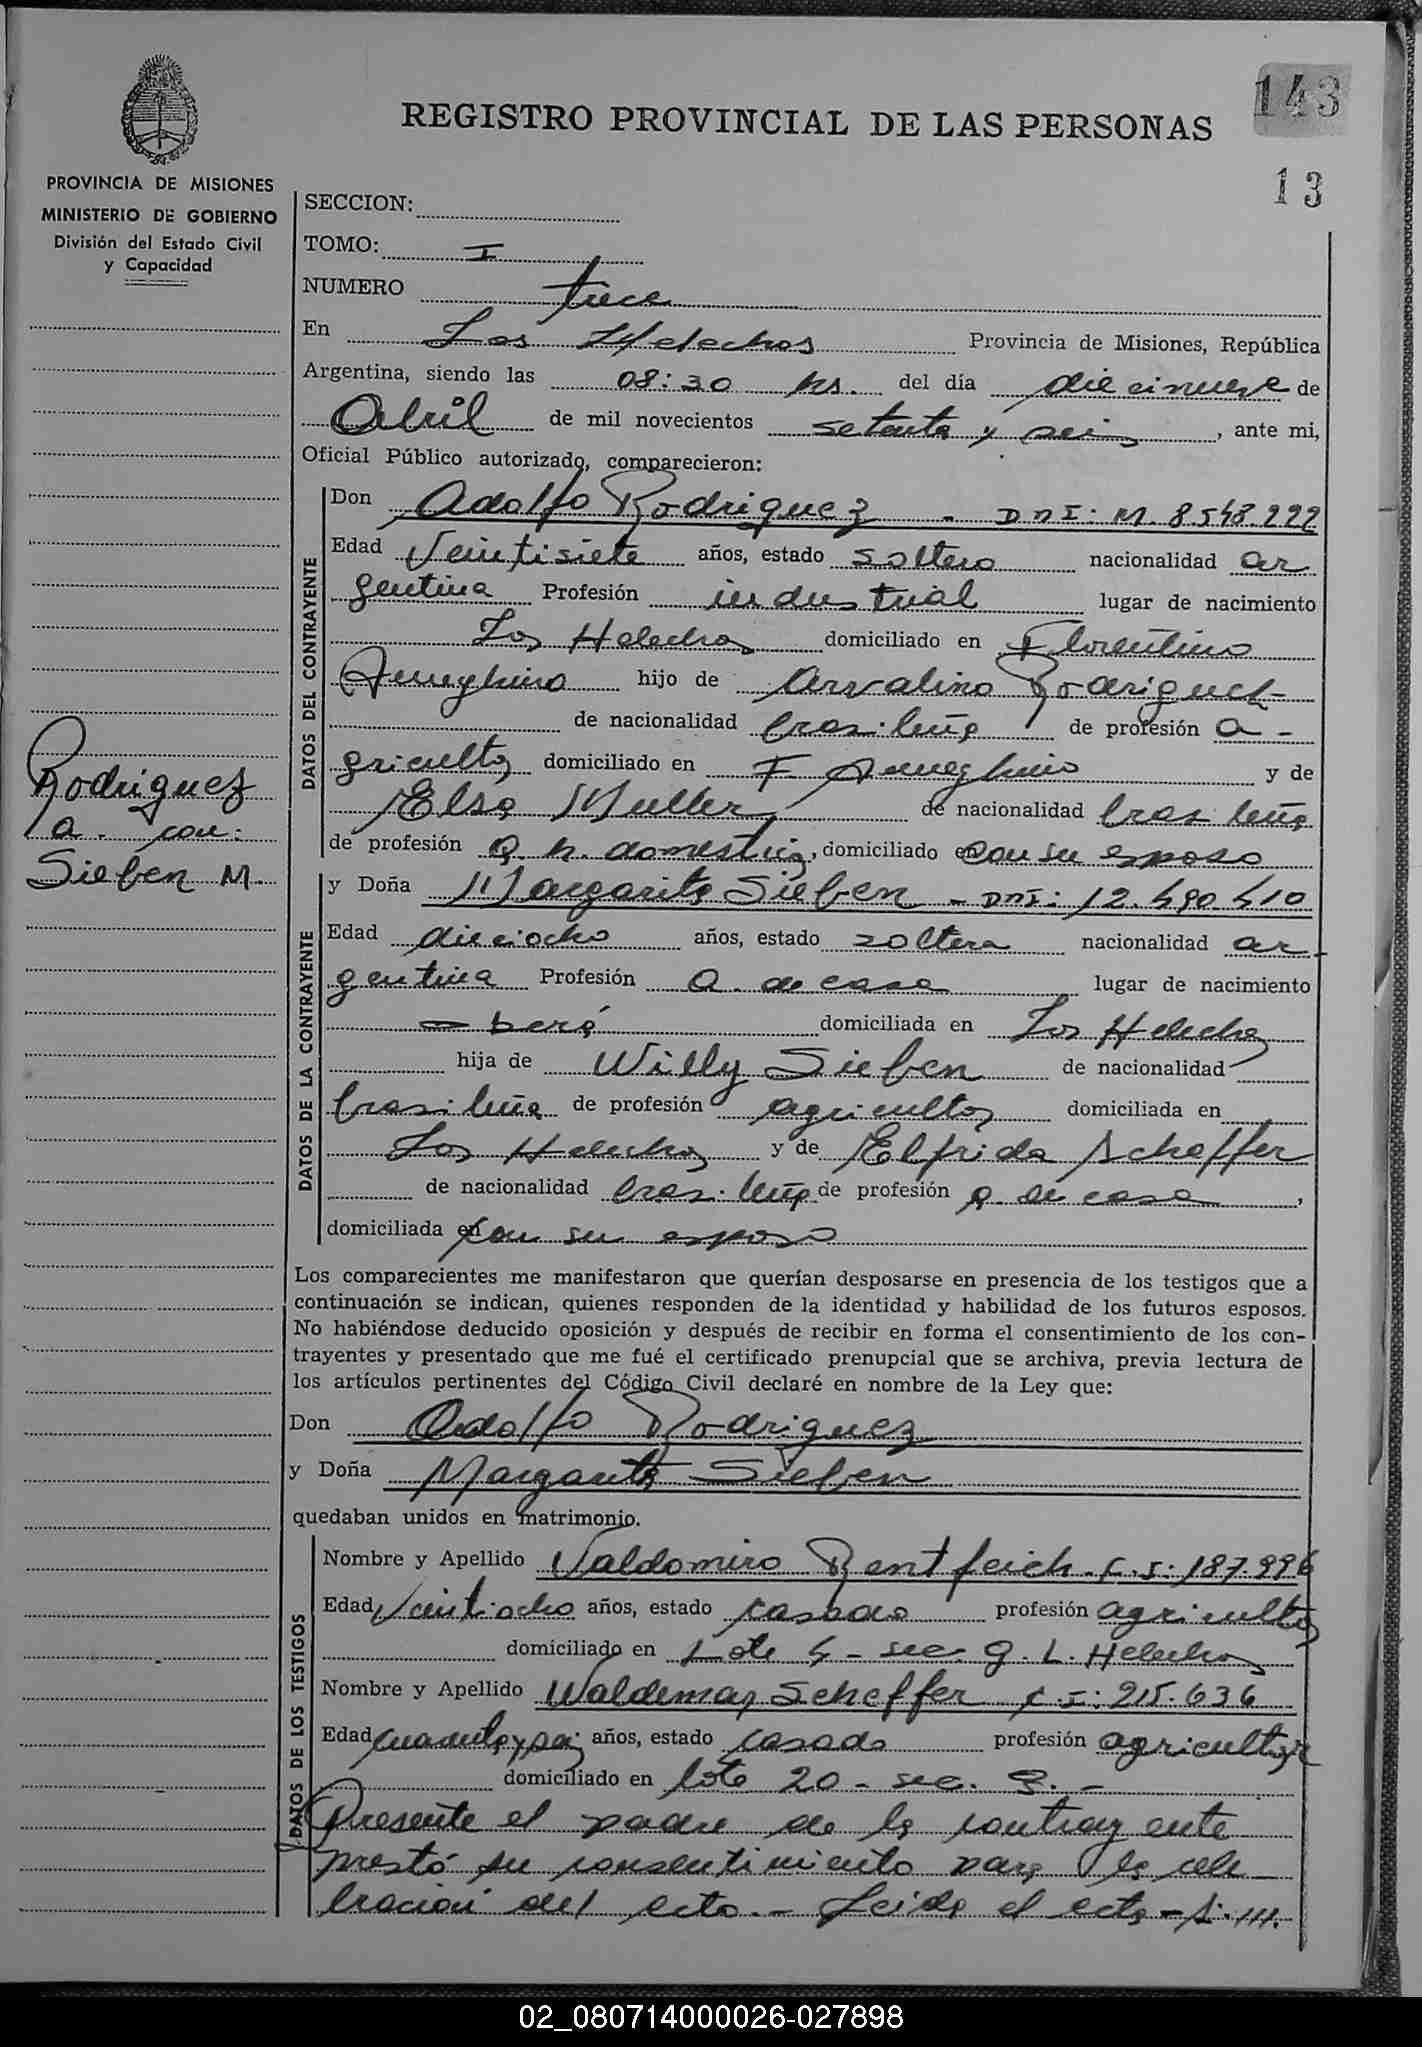 143
REGISTRO PROVINCIAL DE LAS PERSONAS
13
PROVINCIA DE MISIONES
MINISTERIO DE GOBIERNO
División del Estado Civil
y Capacidad
SECCION:
TOMO: I
NUMERO trece
En Los Helechos Provincia de Misiones, República
Argentina, siendo las 08:30 hs. del día diecinueve de
Abril de mil novecientos setenta y seis, ante mi,
Oficial Público autorizado, comparecieron:
DATOS DEL CONTRAYENTE
Don Adolfo Rodriguez - DNI: M. 8.548.222
Edad Veintisiete años, estado soltero nacionalidad ar
gentina Profesión industrial lugar de nacimiento
Los Helechos domiciliado en Florentino
Ameghino hijo de Arvalino Rodriguez
de nacionalidad brasileña de profesión a-
gricultor domiciliado en F Ameghino y de
Elsa Muller de nacionalidad brasileña
de profesión q. h. domesticos, domiciliado en con su esposo
Rodriguez
A. con:
Sieben M.
DATOS DE LA CONTRAYENTE
y Doña Margarita Sieben - DNI: 12.490.410
Edad dieciocho años, estado soltera nacionalidad ar-
gentina Profesión a. de casa lugar de nacimiento
Oberá domiciliada en Los Helechos
hija de Willy Sieben de nacionalidad
brasileña de profesión agricultor domiciliada en
Los Helechos y de Elfrida Scheffer
de nacionalidad brasileña de profesión a de casa,
domiciliada en con su esposo
Los comparecientes me manifestaron que querían desposarse en presencia de los testigos que a
continuación se indican, quienes responden de la identidad y habilidad de los futuros esposos.
No habiéndose deducido oposición y después de recibir en forma el consentimiento de los con-
trayentes y presentado que me fué el certificado prenupcial que se archiva, previa lectura de
los artículos pertinentes del Código Civil declaré en nombre de la Ley que:
Don Adolfo Rodriguez
y Doña Margarita Sieben
quedaban unidos en matrimonio.
DATOS DE LOS TESTIGOS
Nombre y Apellido Valdomiro C.I: 187.996
Edad Veintiocho años, estado casado profesión agricultor
domiciliado en Lote 4 - sec. 9. L. Helechos
Nombre y Apellido Waldemar Scheffer C I: 215.636
Edad cuarenta y seis años, estado casado profesión agricultor
domiciliado en lote 20 - sec. 9. -
Presente el padre de la contrayente
prestó su consentimiento para la cele
bracion del acto. - Leida el acta - S. ///.
02_080714000026-027898